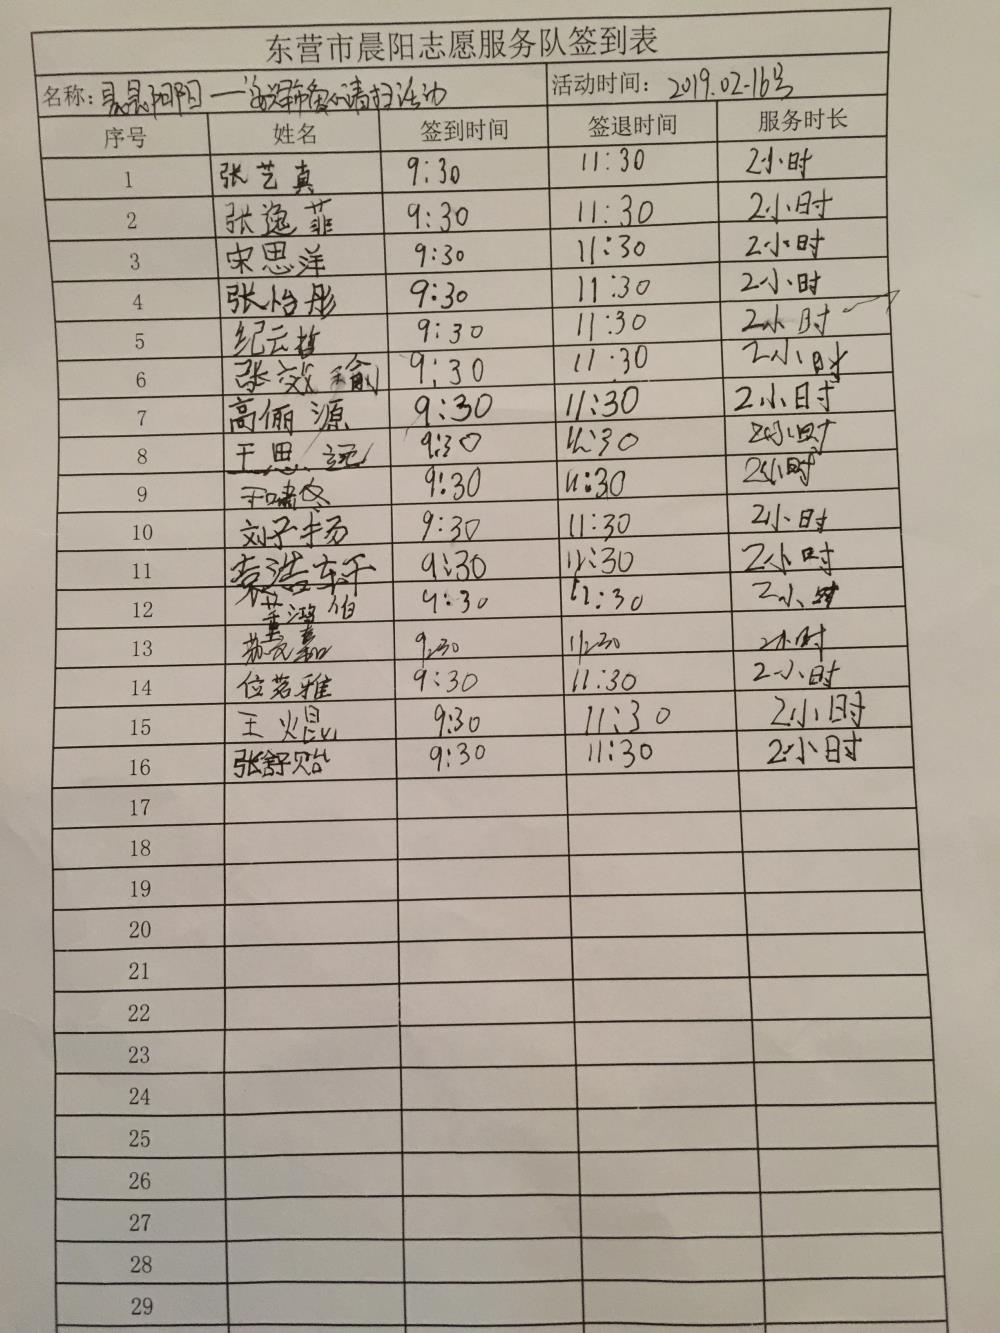 东营市晨阳志愿服务队签到表
名称: 清扫活动 活动时间: 2019.02-16号
序号 姓名 签到时间 签退时间 服务时长
1 张艺真 9:30 11:30 2小时
2 张逸菲 9:30 11:30 2小时
3 宋思洋 9:30 11:30 2小时
4 张怡彤 9:30 11:30 2小时
5 纪云哲 9:30 11:30 2小时
6 张效瑜 9:30 11:30 2小时
7 高俪源 9:30 11:30 2小时
8 王思远 9:30 11:30 2小时
9 9:30 11:30 2小时
10 刘子扬 9:30 11:30 2小时
11 袁浩轩 9:30 11:30 2小时
12 董鸿伯 9:30 11:30 2小时
13 9:30 11:30 2小时
14 位茗雅 9:30 11:30 2小时
15 王焜 9:30 11:30 2小时
16 张舒贻 9:30 11:30 2小时
17
18
19
20
21
22
23
24
25
26
27
28
29